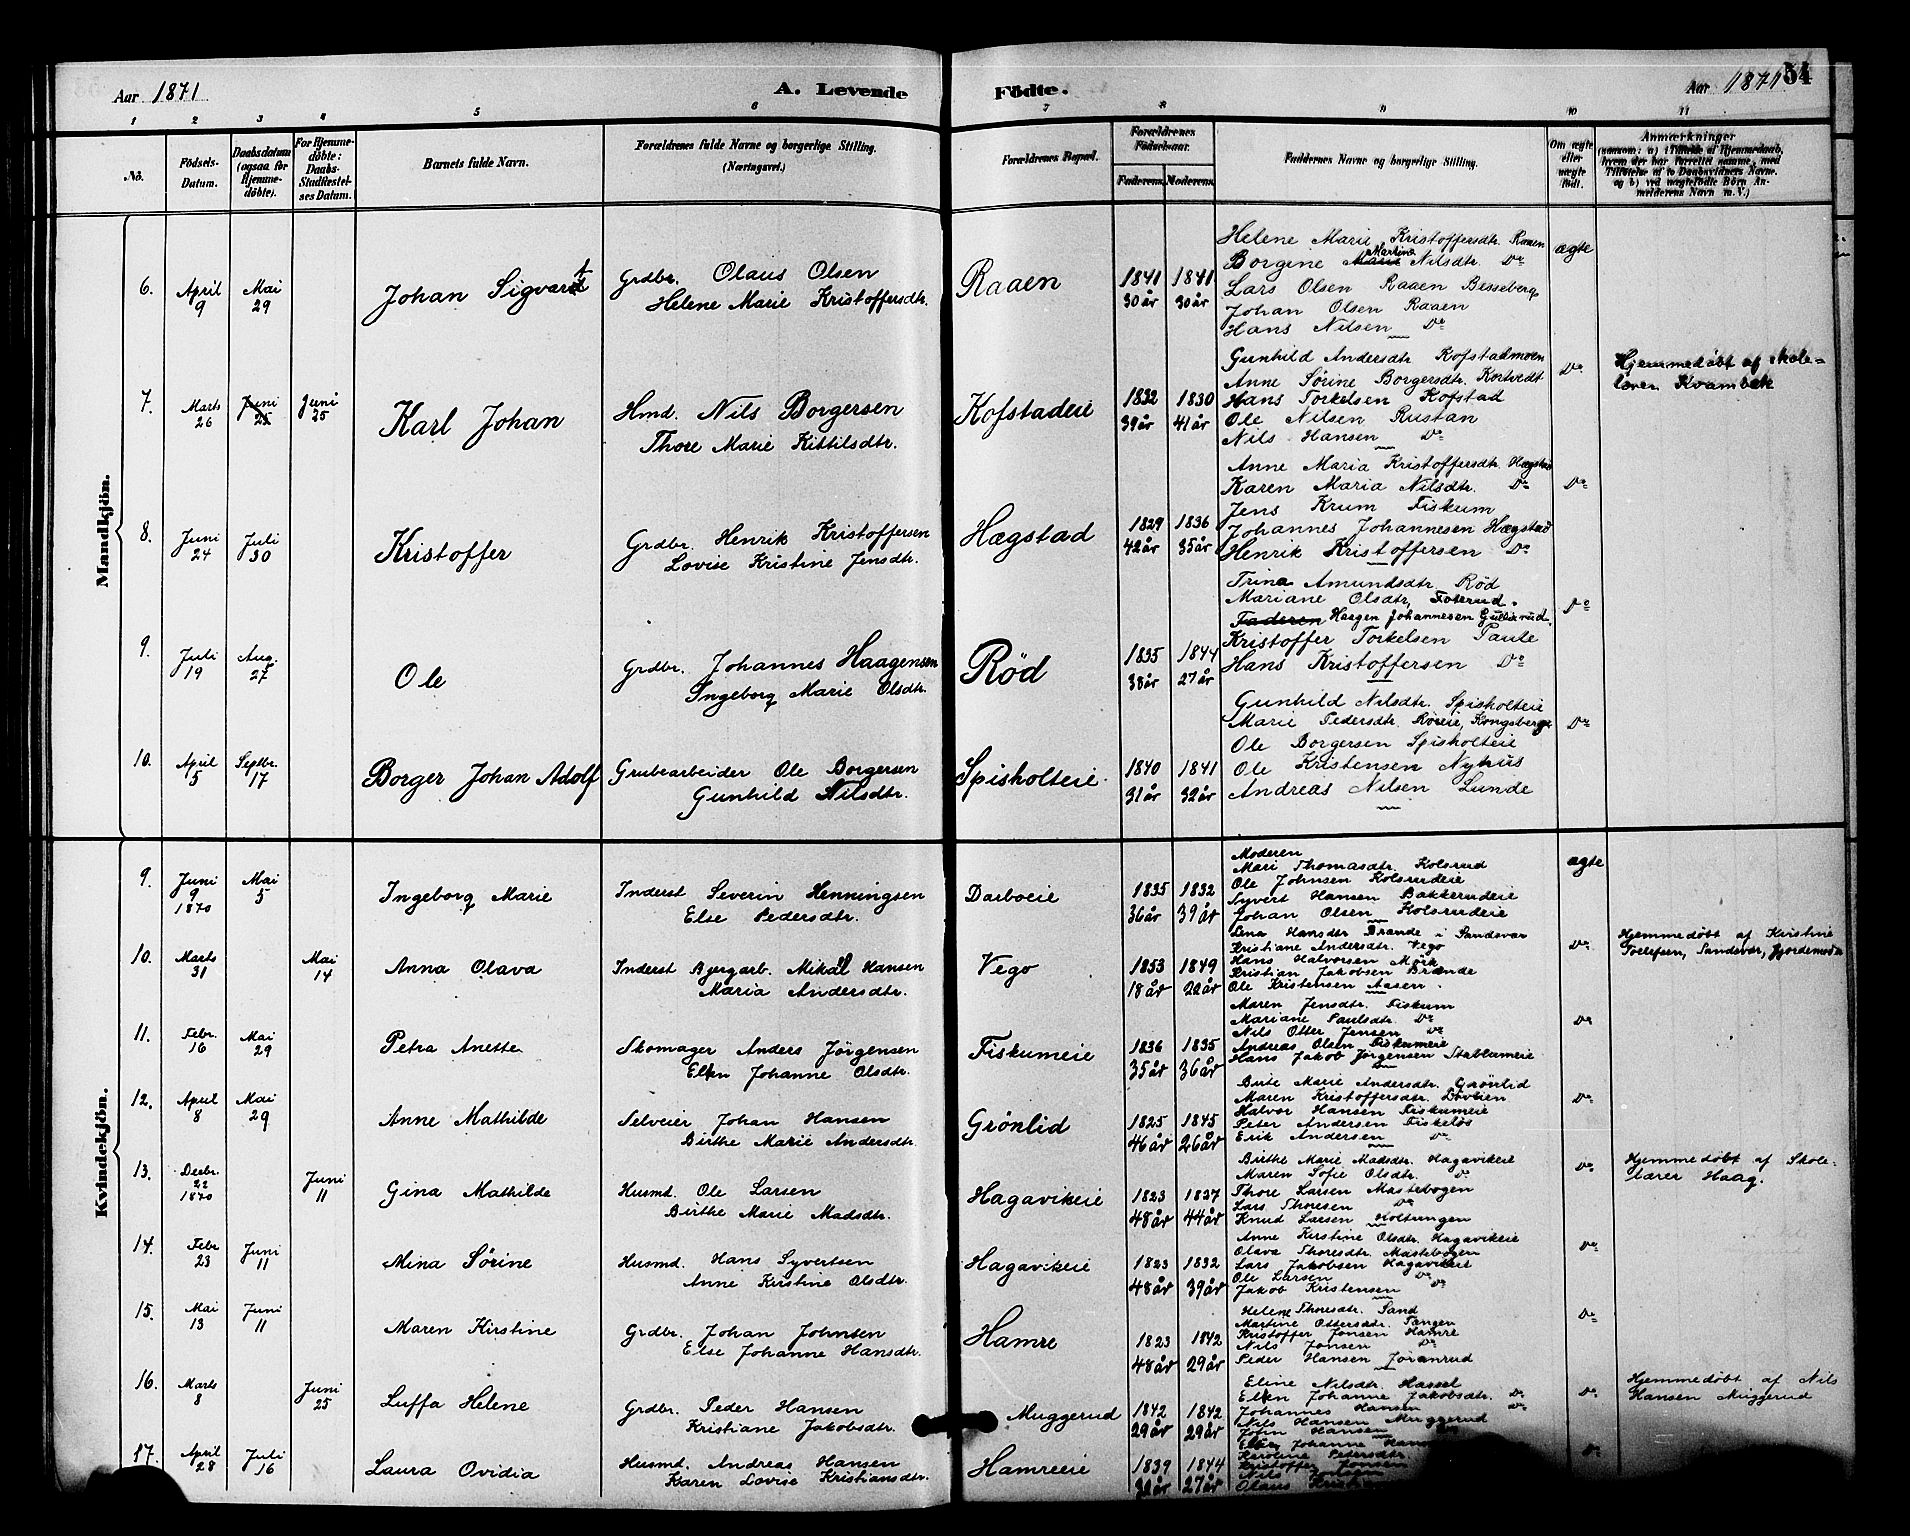 Aar 1871
A. Levende
Födte.
Aar 1871
54
1 2 3 4 5 6 7 8 9 10 11
No.
Födsels-Datum.
Daabsdatum (ogsaa for Hjemmedöbte).
For Hjemmedöbte: Daabs-Stadfæstelses Datum.
Barnets fulde Navn.
Forældrenes fulde Navne og borgerlige Stilling. (Næringsvei.)
Forældrenes Bopæl.
Forældrenes Födselsaar.
Faderens. Moderens.
Faddernes Navne og borgerlige Stilling.
Om ægte eller uægte födt.
Anmærkninger
(saasom: a) i Tilfælde af Hjemmedaab, hvem der har forrettet samme, med Tilföielse af to Daabsvidners Navne. og b) ved uægtefödte Börn Anmelderens Navn m. V.)
Mandkjön.
6. April 9 Mai 29 Johan Sigvart
Grdbr. Olaus Olsen
Helene Marie Kristoffersdtr.
Raaen 1841 30 år 1841 30 år
Helene Marie Kristoffersdtr. Raaen
Borgine Martine Nilsdtr. Do
Lars Olsen Raaen Besseberg
Johan Olsen Raaen
Hans Nilsen Do
ægte
7. Marts 26 Juni 25 Juni 25 Karl Johan
Hmd. Nils Borgersen
Thore Marie Kittilsdtr.
Kofstadeie 1832 39 år 1830 41 år
Gunhild Andersdtr Kofstadmoen
Anne Sørine Borgersdtr. Kortvedt
Hans Torkelsen Kofstad
Ole Nilsen Rustan
Nils Hansen Do
Do
Hjemmedøbt af Skole-
lærer Kvambæk
8. Juni 24 Juli 30 Kristoffer
Grdbr. Henrik Kristoffersen
Lovise Kristine Jensdtr.
Hægstad 1829 42 år 1836 35 år
Anne Maria Kristoffersdtr. Hægstad
Karen Maria Nilsdtr. Do
Jens Krum Fiskum
Johannes Johannesen Hægstad
Henrik Kristoffersen Do
Do
9. Juli 19 Aug. 27 Ole
Grdbr. Johannes Haagensen
Ingeborg Marie Olsdtr.
Rød 1835 38 år 1844 27 år
Trina Amundsdtr. Rød
Mariane Olsdtr, Foterud.
Faderen Haagen Johannesen Gulliksrud
Kristoffer Torkelsen Taule
Hans Kristoffersen Do
Do
10. April 5 Septbr. 17 Borger Johan Adolf
Grubearbeider Ole Borgersen
Gunhild Nilsdtr.
Spisholteie 1840 31 år 1841 32 år
Gunhild Nilsdtr. Spisholteie
Marie Pedersdtr. Røreie, Kongsberg
Ole Borgersen Spisholteie
Ole Kristensen Nyhus
Andreas Nilsen Lunde
Do
Kvindekjön.
9. Juni 9 1870 Mai 5 Ingeborg Marie
Inderst Severin Henningsen
Else Pedersdtr.
Darboeie 1835 36 år 1832 39 år
Moderen
Mari Thomasdtr Kolsrud
Ole Johnsen Kolsrudeie
Syvert Hansen Bakkerudeie
Johan Olsen Kolsrudeie
ægte
10. Marts 31 Mai 14 Anna Olava
Inderst Bergarb. Mikal Hansen
Maria Andersdtr.
Vego 1853 18 år 1849 22 år
Lena Hansdtr Brænde i Sandsvær
Kristiane Andersdtr. Vego
Hans Halvorsen Mørk
Kristian Jakobsen Brænde
Ole Kristensen Aasen.
Do
Hjemmedøbt af Kristine
Tollefsen, Sandsvær, Gjordemoder
11. Febr. 16 Mai 29 Petra Anette
Skomager Anders Jørgensen
Ellen Johanne Olsdtr.
Fiskumeie 1836 35 år 1835 36 år
Maren Jensdtr. Fiskum
Mariane Paulsdtr. Do
Nils Otter Jensen Do
Andreas Olsen Fiskumeie
Hans Jakob Jørgensen Stablumeie
Do
12. April 8 Mai 29 Anne Mathilde
Selveier Johan Hansen
Birthe Marie Andersdtr.
Grønlid 1825 46 år 1845 26 år
Birte Marie Andersdtr. Grønlid
Maren Kristoffersdtr. Døvlien
Halvor Hansen Fiskumeie
Peter Andersen Fiskeløs
Erik Andersen Do
Do
13. Decbr. 22 1870 Juni 11 Gina Mathilde
Husmd. Ole Larsen
Birthe Marie Madsdtr.
Hagavikeie 1823 48 år 1827 44 år
Birthe Marie Madsdtr. Hagavikeie
Maren Sofie Olsdtr. Do
Thore Larsen Mastebogen
Lars Thoresen Do
Knud Larsen Holtungen
Do
Hjemmedøbt af Skole-
lærer Haag.
14. Febr 23 Juni 11 Mina Sørine
Husmd. Hans Syvertsen
Anne Kirstine Olsdtr.
Hagavikeie 1823 48 år 1832 39 år
Anne Kirstine Olsdtr. Hagavikeie
Olava Thoresdtr. Mastebogen
Lars Jakobsen Hagavikeie
Ole Larsen Do
Jakob Kristensen Do
Do
15. Mai 13 Juni 11 Maren Kirstine
Grdbr. Johan Johnsen
Else Johanne Hansdtr.
Hamre 1823 48 år 1842 29 år
Helene Thoresdtr. Sand
Martine Ottersdtr. Tangen
Kristoffer Jonsen Hamre
Nils Jonsen Do
Peder Hansen Jøranrud
Do
16. Marts 8 Juni 25 Luffa Helene
Grdbr. Peder Hansen
Kristiane Jakobsdtr.
Muggerud 1842 29 år 1842 29 år
Eline Nilsdtr. Hassel
Ellen Johanne Jakobsdtr. Do
Johannes Hansen Do
Nils Hansen Muggerud
John Hansen
Do
Hjemmedøbt af Nils
Hansen Muggerud
17. April 28 Juli 16 Laura Ovidia
Husmd. Andreas Hansen
Karen Lovise Kristiansdtr.
Hamreeie 1839 32 år 1844 27 år
Johanne
Karoline Pedersdtr
Kristoffer Jonsen
Nils
Olaus
Do